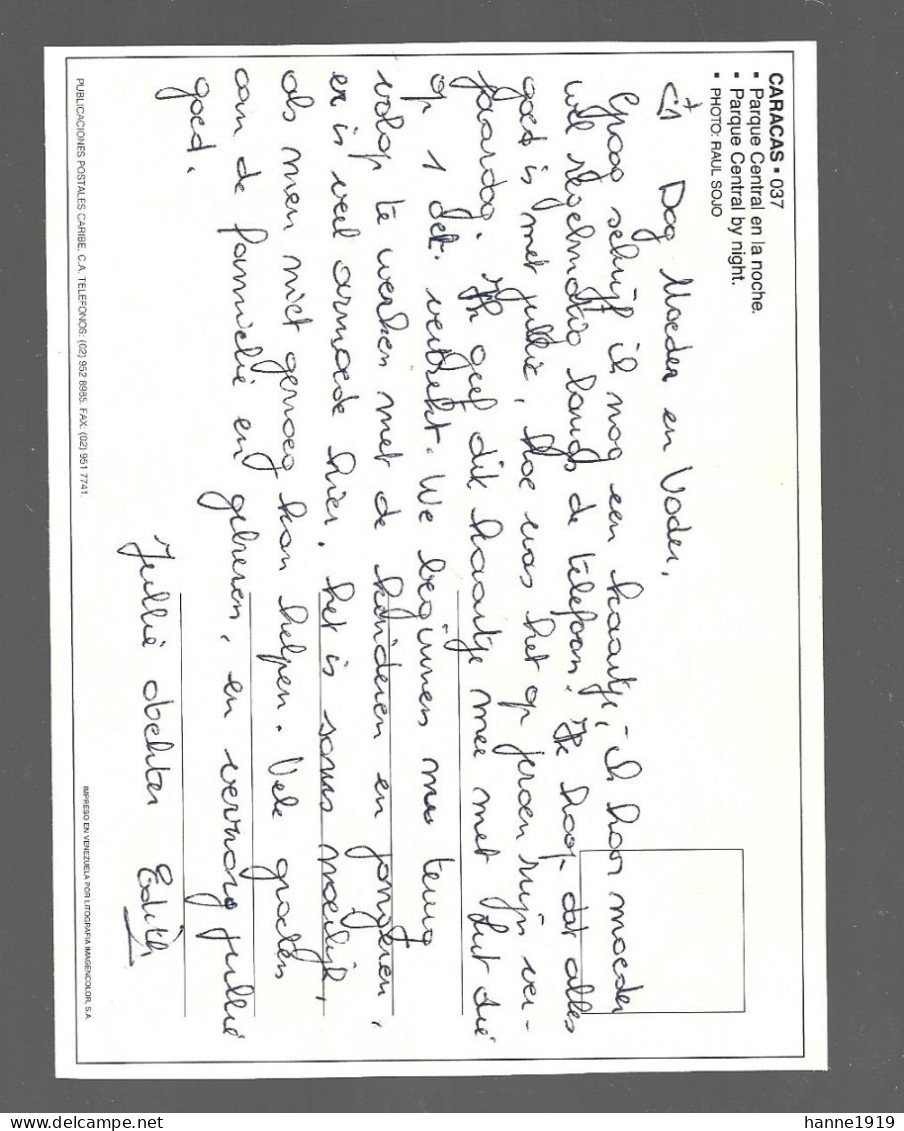 CARACAS ▪ 037
▪ Parque Central en la noche.
▪ Parque Central by night.
▪ PHOTO: RAUL SOJO
Dag Moeder en Vader,
Graag schrijf ik nog een kaartje, ik hoor moeder
wel regelmatig langs de telefoon. Ik hoop dat alles
goed is met jullie, hoe was het op jeroen zijn ver-
jaardag. Ik geef dit kaartje mee met Rut die
op 1 det. vertrekt. We beginnen nu terug
volop te werken met de kinderen en jongeren,
er is veel armoede hier, het is soms moeilijk,
als men niet genoeg kan helpen. Vele groeten
aan de familie en geburen, en verzorg jullie
goed.
Jullie dochter Edith
PUBLICACIONES POSTALES CARIBE, C.A. TELEFONOS: (02) 952 8985. FAX: (02) 951 7741.
IMPRESO EN VENEZUELA POR LITOGRAFIA IMAGENCOLOR, S.A.
hanne1919